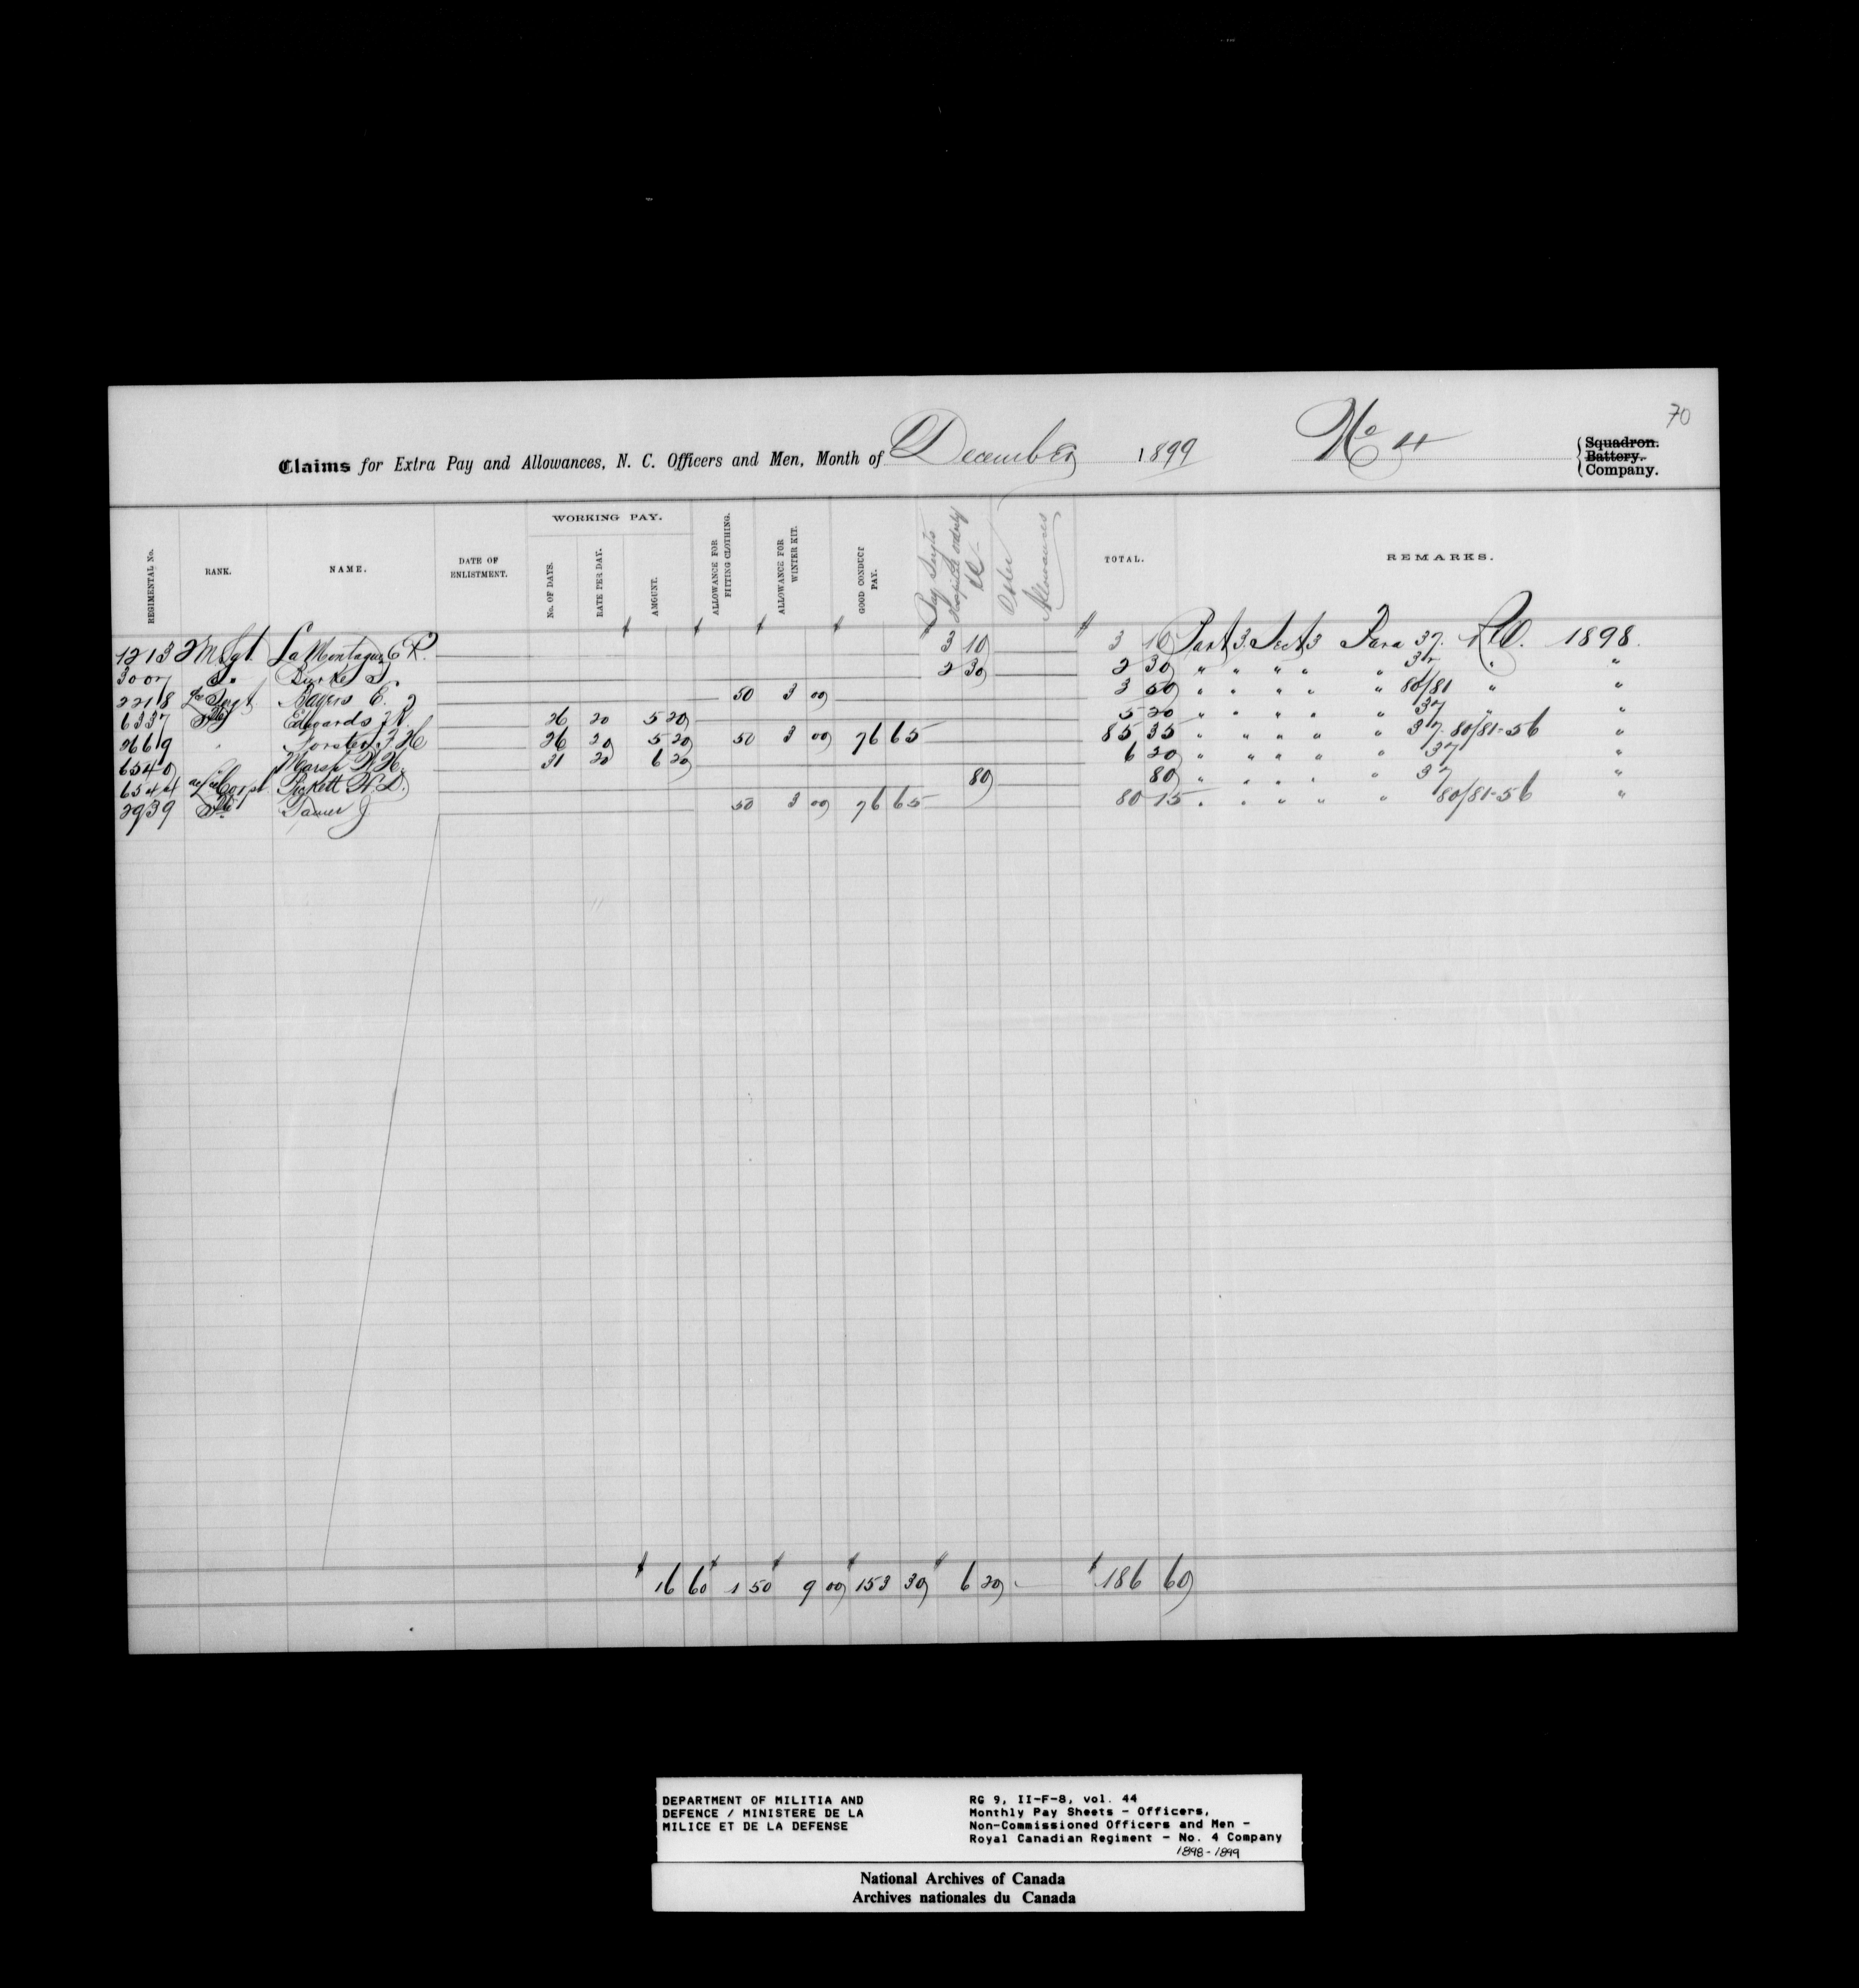 70
Claims for Extra Pay and Allowances, N. C. Officers and Men, Month of December 1899 No 4 Squadron. Battery. Company.
REGIMENTAL No. RANK. NAME. DATE OF ENLISTMENT. WORKING PAY. No. OF DAYS. RATE PER DAY. AMOUNT. ALLOWANCE FOR FITTING CLOTHING. ALLOWANCE FOR WINTER KIT. GOOD CONDUCT PAY. Pay Sergts Hospital orderly &c Other Allowances TOTAL. REMARKS.
1213 La Montague E P. 3 10 3 10 Part 3. Sect 3 Para 37. R.O. 1898.
3007 Burke 2 30 2 30 " " " " " 37 " "
2218 Sergt Bayers E. 50 3 00 3 50 " " " " " 80/81 " "
6337 Pte Edwards J R. 26 20 5 20 5 20 " " " " " 37 " "
2669 " Forster F H 26 20 5 20 50 3 00 76 65 85 35 " " " " " 37. 80/81-56 "
6540 Marsh W H. 31 20 6 20 6 20 " " " " " 37 "
6544 Corpl. Pickett H. D. 80 80 " " " " " 37 "
2939 Pte Tanner J 50 3 00 76 65 80 15 " " " " " 80/81-56 "
$ 16 60 $ 1 50 $ 9 00 $ 153 30 $ 6 20 $ 186 60
DEPARTMENT OF MILITIA AND
DEFENCE / MINISTERE DE LA
MILICE ET DE LA DEFENSE
RG 9, II-F-8, vol. 44
Monthly Pay Sheets - Officers,
Non-Commissioned Officers and Men -
Royal Canadian Regiment - No. 4 Company
1898-1899
National Archives of Canada
Archives nationales du Canada